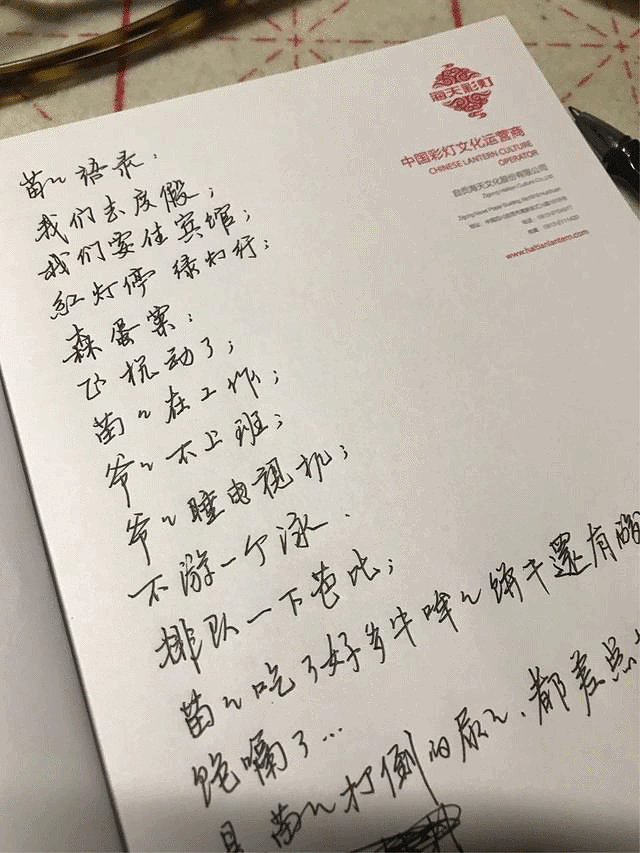 海天彩灯
中国彩灯文化运营商
CHINESE LANTERN CULTURE
OPERATOR
自贡海天文化股份有限公司
Zigong Haitian Culture Co.,Ltd.
www.haitianlantern.com
苗〻语录:
我们去度假;
我们要住宾馆;
红灯停 绿灯行;
森蛋案;
飞机动了;
苗〻在工作;
爷〻不上班;
爷〻睡电视机;
不游一个泳.
排队一下芭比;
苗〻吃了好多牛哞〻饼干还有
饱嗝了...
苗〻打倒的尿〻、都差点